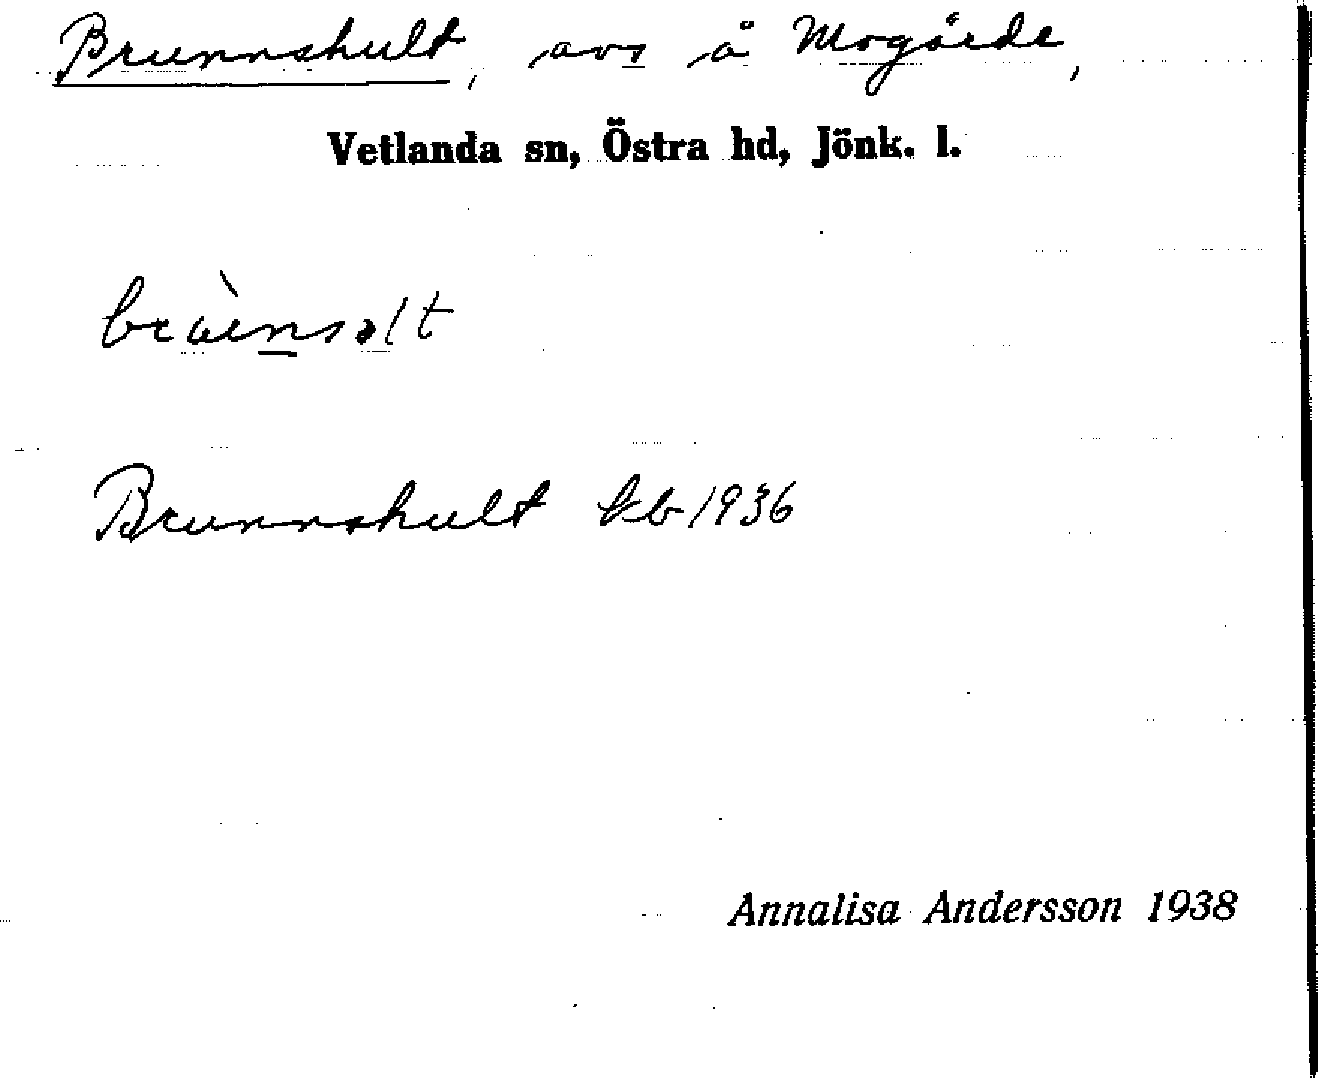 Brunnshult, avs å Mogärde,
Vetlanda sn, Östra hd, Jönk. l.
Brunnshult kb 1936
Annalisa Andersson 1938